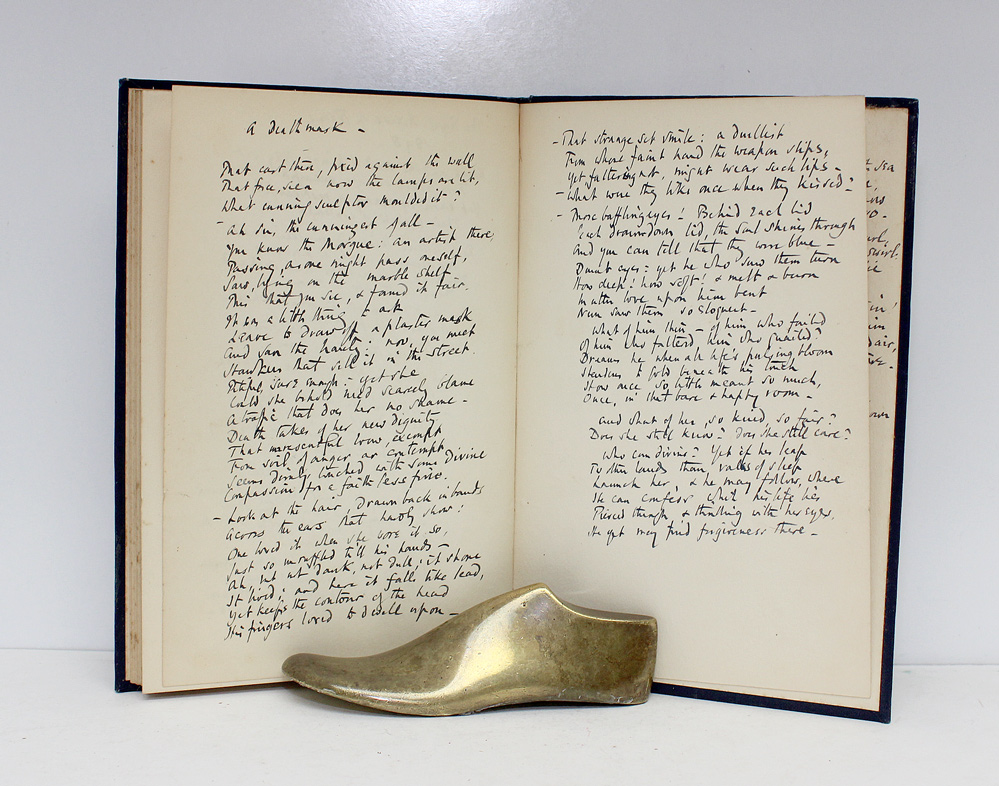 A Deathmask -
That cast there, pried against the wall
That face, seen now the lamps are lit,
What cunning sculptor moulded it?
- Ah Sir, the cunningest of all -
You know the Morgue: an artist there,
Passing, as one might pass oneself,
Saw, lying on the marble shelf
This that you see, & found it fair.
It was a little thing to ask
Leave to draw off a plaster mask
And save the beauty: now, you meet
Hawkers that sell it in the street.
Pitiful, sure enough: yet she
Could she behold need scarcely blame
A traffic that does her no shame -
Death takes of her new dignity
That unresentful brow, exempt
From soil of anger or contempt
Seems dimly touched with some divine
Compassion for a faithless
- Look at the hair, drawn back in bands
Across the ears that hardly show!
One loved it when she wore it so,
Just so unruffled till his hands -
Ah, but not dank, not dull, it shone
It lived; and here it falls like lead,
Yet keeps the contour of the head
His fingers loved to dwell upon -
- That strange set smile: a duellist
From whose faint hand the weapon slips,
Yet faltering not, might wear such lips -
- What were they like once when they kissed?
- More baffling eyes - Behind each lid
Each drawndown lid, the soul shines through
And you can tell that they were blue -
Dumb eyes: yet he who saw them turn
How deep! how soft! & melt & burn
In utter love upon him bent
Never saw them so eloquent -
What of him then - of him who failed
of him who faltered, him who quailed?
Dreams he when all life's pulsing bloom
Stardust & gold beneath his touch
How once so little meant so much,
Once, in that bare & happy room -
And what of her, so kind, so fair?
Does she still know? Does she still care?
Who can divine? Yet if her leap
To other lands than vales of sleep
Launch her, & he may follow, where
He can confess what his life lies
Pierced through & thrilling with her eyes,
He yet may find forgiveness there -
sea